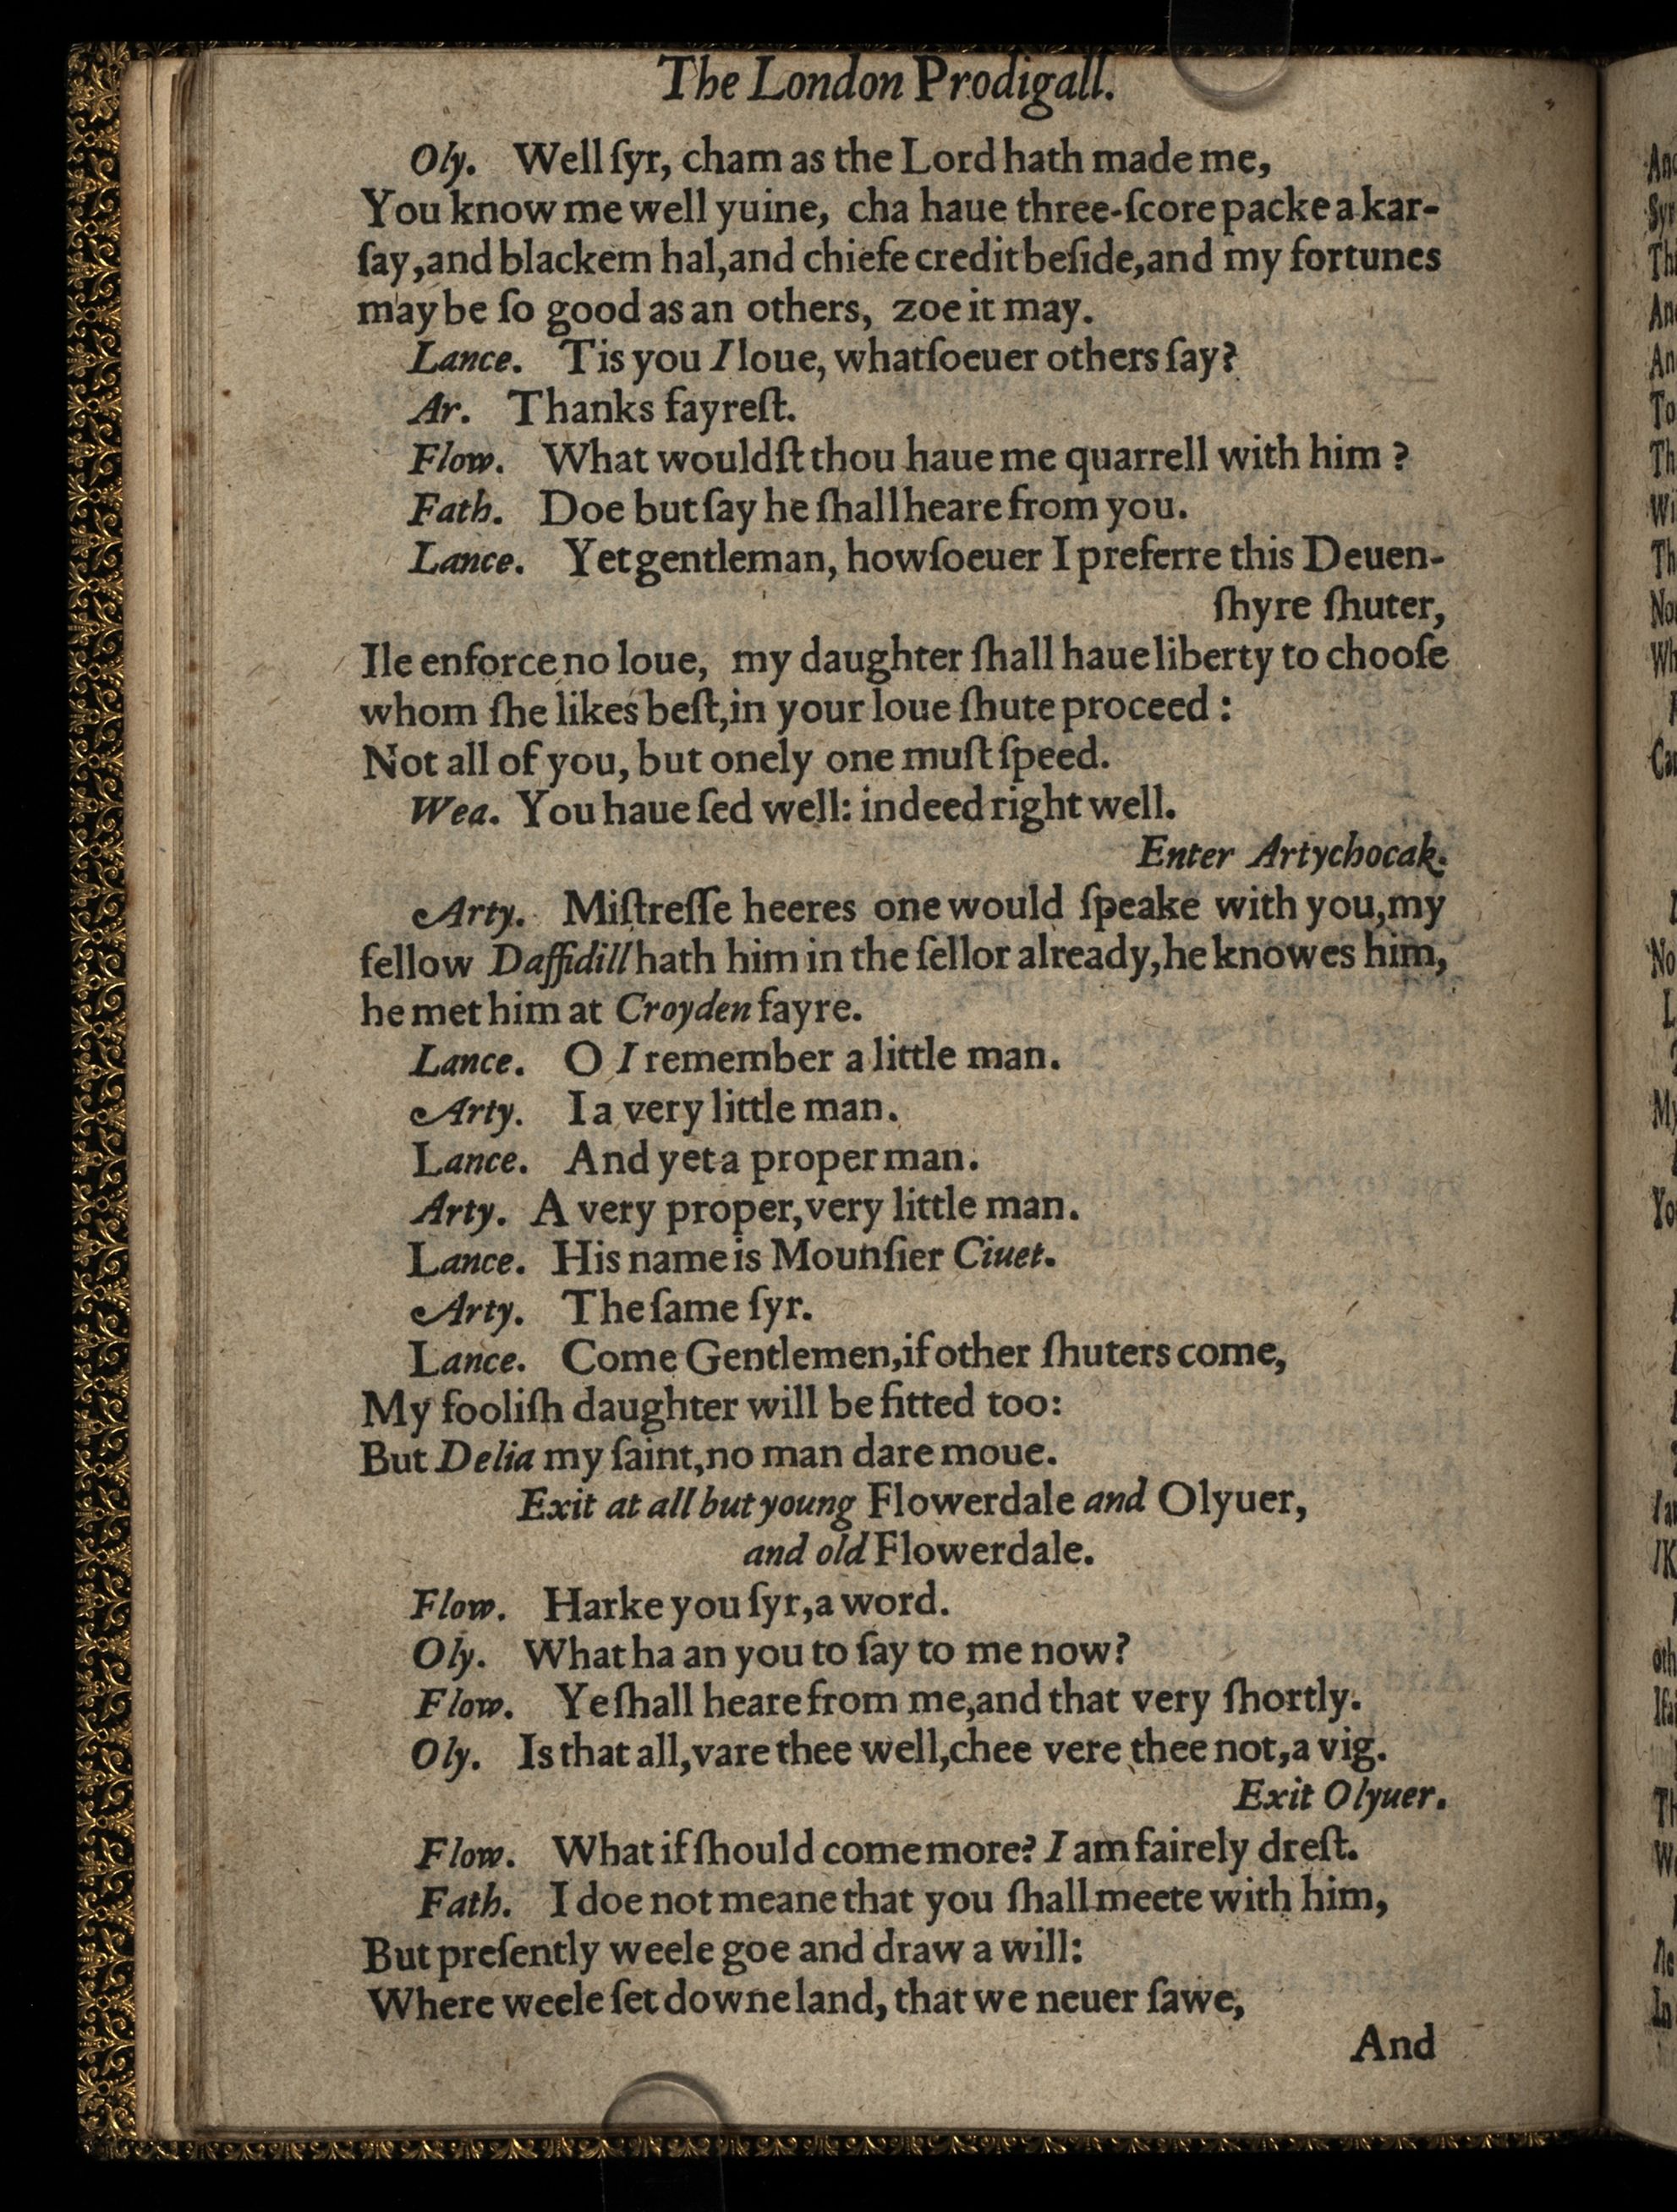 The London Prodigall.
Oly. Well ſyr, cham as the Lord hath made me,
You know me well yuine, cha haue three-ſcore packe a kar-
ſay, and blackem hal, and chiefe credit beſide, and my fortunes
may be ſo good as an others, zoe it may.
Lance. Tis you I loue, whatſoeuer others ſay?
Ar. Thanks fayreſt.
Flow. What wouldſt thou haue me quarrell with him ?
Fath. Doe but ſay he ſhall heare from you.
Lance. Yet gentleman, howſoeuer I preferre this Deuen-
ſhyre ſhuter,
Ile enforce no loue, my daughter ſhall haue liberty to chooſe
whom ſhe likes beſt, in your loue ſhute proceed :
Not all of you, but onely one muſt ſpeed.
Wea. You haue ſed well: indeed right well.
Enter Artychocak.
Arty. Miſtreſſe heeres one would ſpeake with you, my
fellow Daffidill hath him in the ſellor already, he knowes him,
he met him at Croyden fayre.
Lance. O I remember a little man.
Arty. I a very little man.
Lance. And yet a proper man.
Arty. A very proper, very little man.
Lance. His name is Mounſier Ciuet.
Arty. The ſame ſyr.
Lance. Come Gentlemen, if other ſhuters come,
My fooliſh daughter will be fitted too:
But Delia my ſaint, no man dare moue.
Exit at all but young Flowerdale and Olyuer,
and old Flowerdale.
Flow. Harke you ſyr, a word.
Oly. What ha an you to ſay to me now?
Flow. Ye ſhall heare from me, and that very ſhortly.
Oly. Is that all, vare thee well, chee vere thee not, a vig.
Exit Olyuer.
Flow. What if ſhould come more? I am fairely dreſt.
Fath. I doe not meane that you ſhall meete with him,
But preſently weele goe and draw a will:
Where weele ſet downe land, that we neuer ſawe,
And